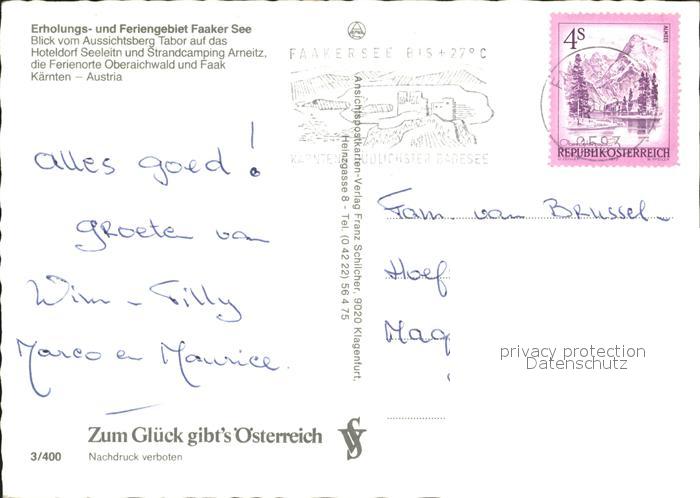 Erholungs- und Feriengebiet Faaker See
Blick vom Aussichtsberg Tabor auf das
Hoteldorf Seeleitn und Strandcamping Arneitz,
die Ferienorte Oberaichwald und Faak
Kärnten – Austria
FAAKERSEE BIS +27°C
KÄRNTENS SÜDLICHSTER BADESEE
4S
ALMSEE
REPUBLIK ÖSTERREICH
Alles goed!
groeten van
Wim - Tilly
Marco en Maurice.
Ansichtspostkarten-Verlag Franz Schilcher, 9020 Klagenfurt,
Heinzgasse 8 - Tel. (0 42 22) 56 4 75
Fam. van Brussel
Hoef
Maq
privacy protection
Datenschutz
Zum Glück gibt's Österreich
3/400
Nachdruck verboten